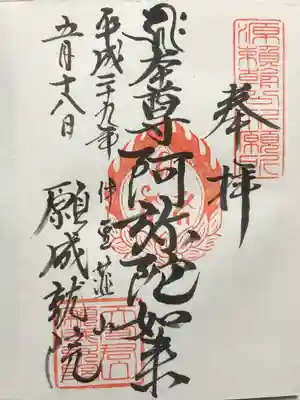 奉拝
本尊阿弥陀如来
伊豆韮山
願成就院
平成二十九年
五月十八日